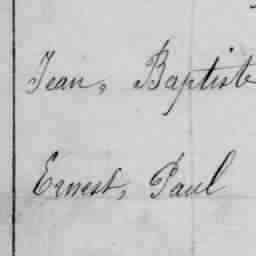 Jean, Baptiste
Ernest, Paul